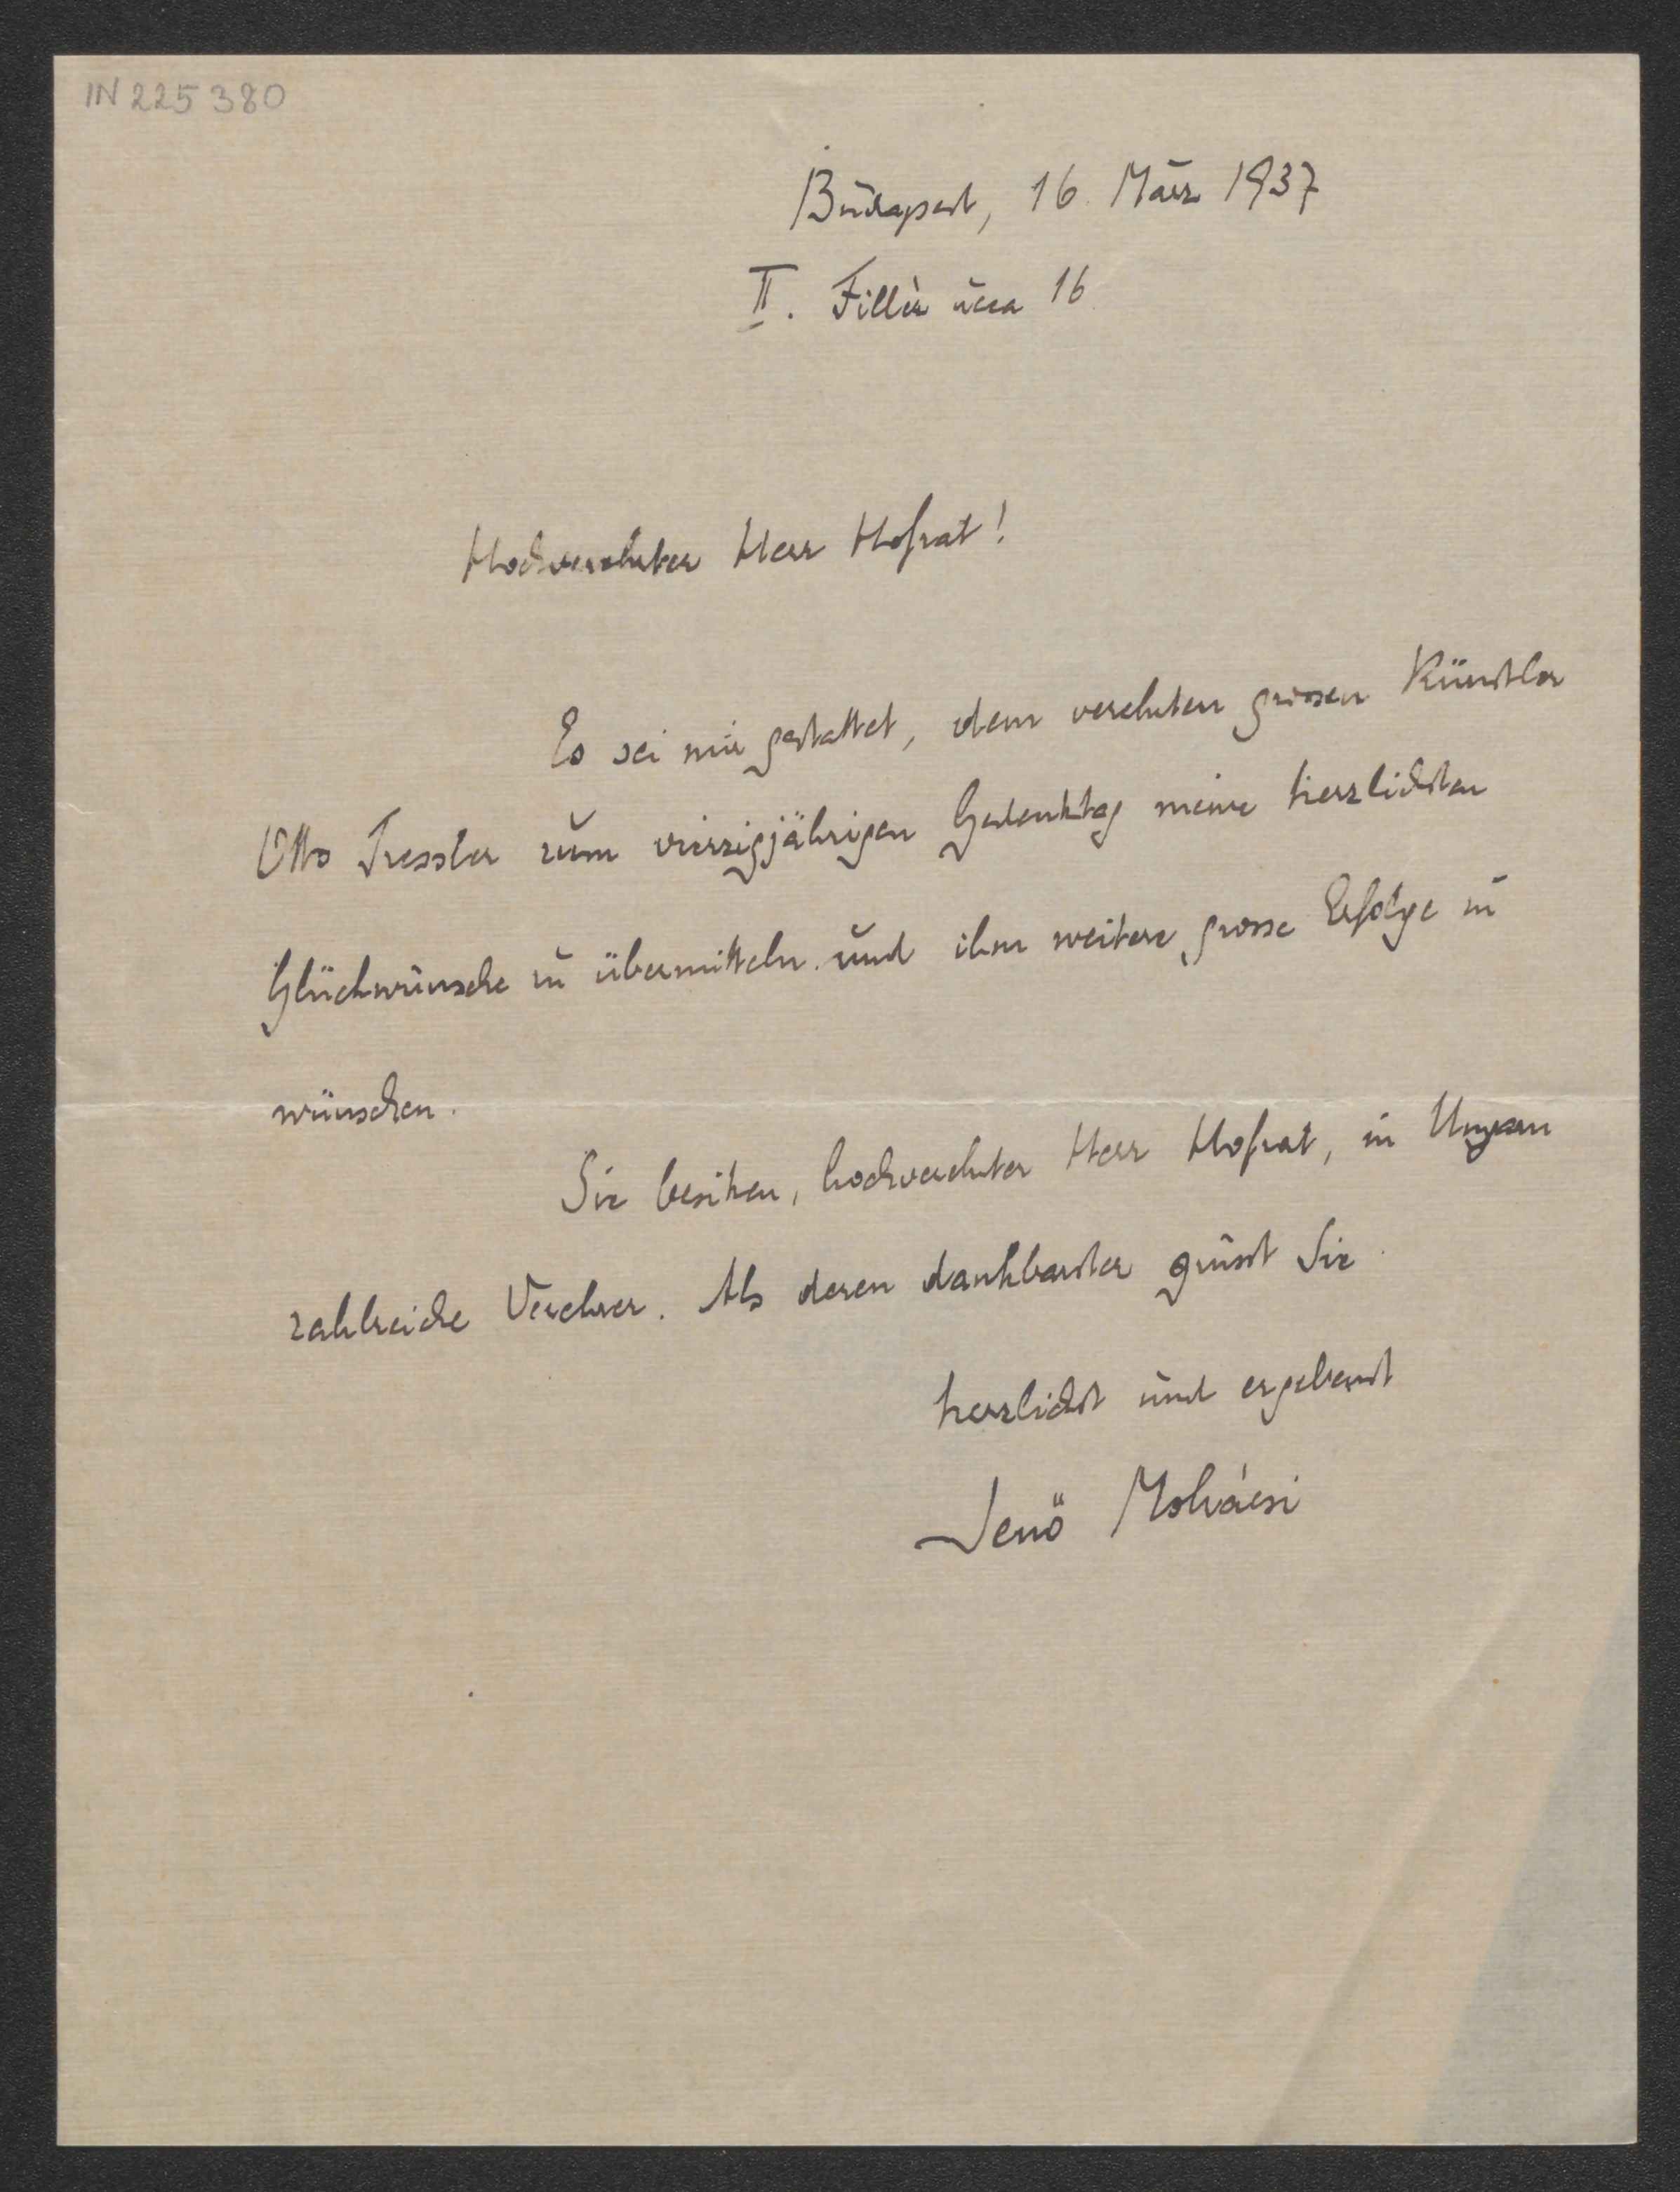 IN 225 380
Budapest, 16. März 1937
II. Fillér ucca 16
Hochverehrter Herr Hofrat!
Es sei mir gestattet, dem verehrten grossen Künstler
Otto Tressler zum vierzigjährigen Gedenktag meine herzlichsten
Glückwünsche zu übermitteln und ihm weitere grosse Erfolge zu
wünschen.
Sie besitzen, hochverehrter Herr Hofrat, in Ungarn
zahlreiche Verehrer. Als deren dankbarster grüsst Sie
herzlichst und ergebenst
Jenö Mohácsi